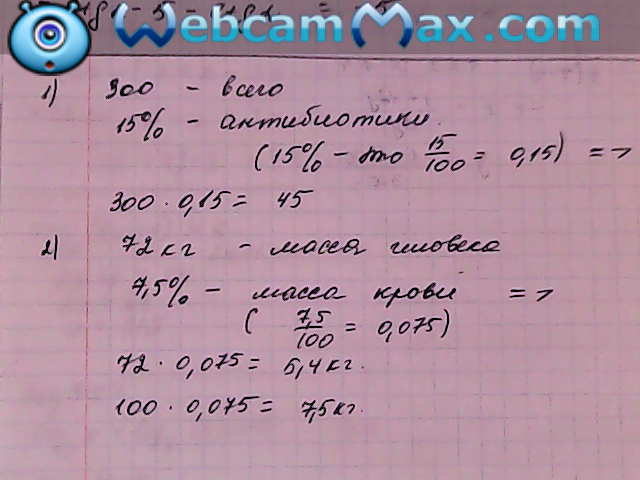 WebcamMax.com
1) 300 - всего
15% - антибиотики.
(15% - это 15/100 = 0,15) =>
300 · 0,15 = 45
2) 72 кг - масса человека
7,5% - масса крови =>
( 7,5/100 = 0,075)
72 · 0,075 = 5,4 кг.
100 · 0,075 = 7,5 кг.